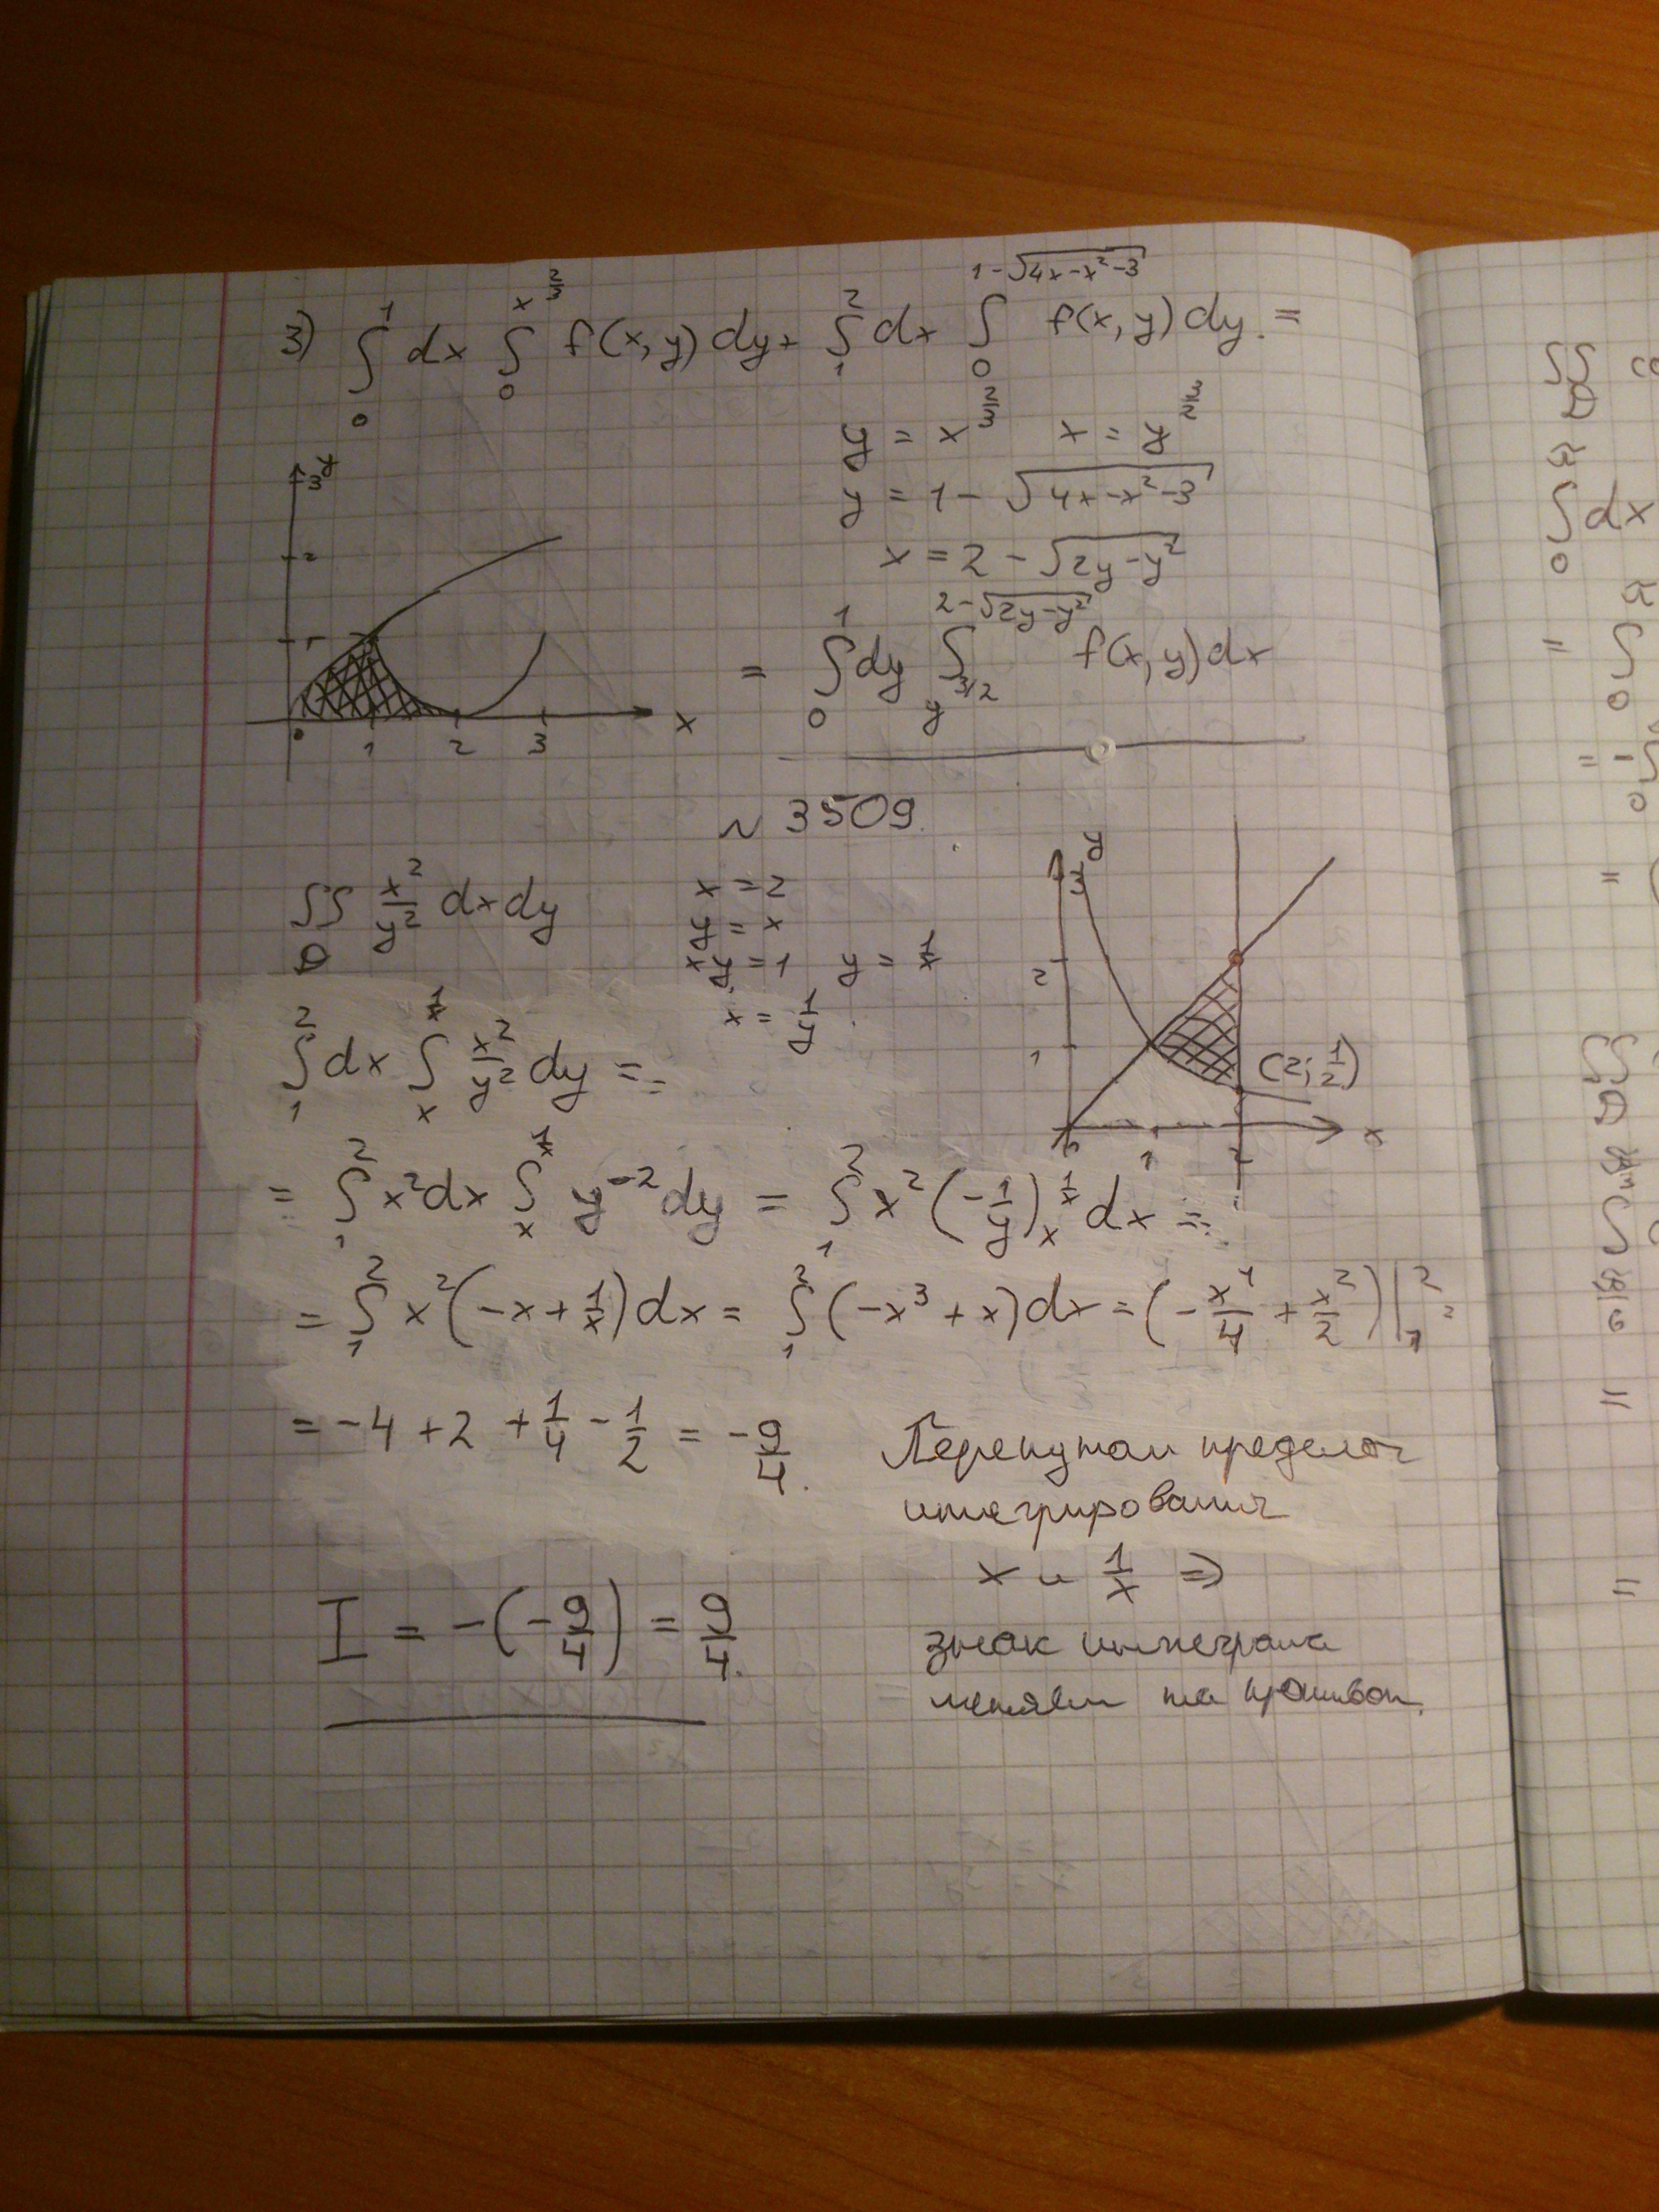 3) ∫₀¹ dx ∫₀^{x^{2/3}} f(x,y)dy + ∫₁² dx ∫₀^{1-√(4x-x²-3)} f(x,y)dy. =
y = x^{2/3} x = y^{3/2}
y = 1 - √(4x-x²-3)
x = 2 - √(2y-y²)
y 3 2 1 0 1 2 3 x
= ∫₀¹ dy ∫_{y^{3/2}}^{2-√(2y-y²)} f(x,y)dx
~ 3509.
∬_D x²/y² dxdy
x = 2
y = x
xy = 1 y = 1/x
x = 1/y
y 3 2 1 0 1 2 x
(2; 1/2)
∫₁² dx ∫ₓ^{1/x} x²/y² dy =
= ∫₁² x²dx ∫ₓ^{1/x} y⁻²dy = ∫₁² x² (-1/y)ₓ^{1/x} dx =
= ∫₁² x² (-x + 1/x) dx = ∫₁² (-x³ + x) dx = (-x⁴/4 + x²/2)|₁² =
= -4 + 2 + 1/4 - 1/2 = -9/4.
Перепутал пределы
интегрирования
x и 1/x ⇒
знак интеграла
меняем на противоп.
I = -(-9/4) = 9/4.